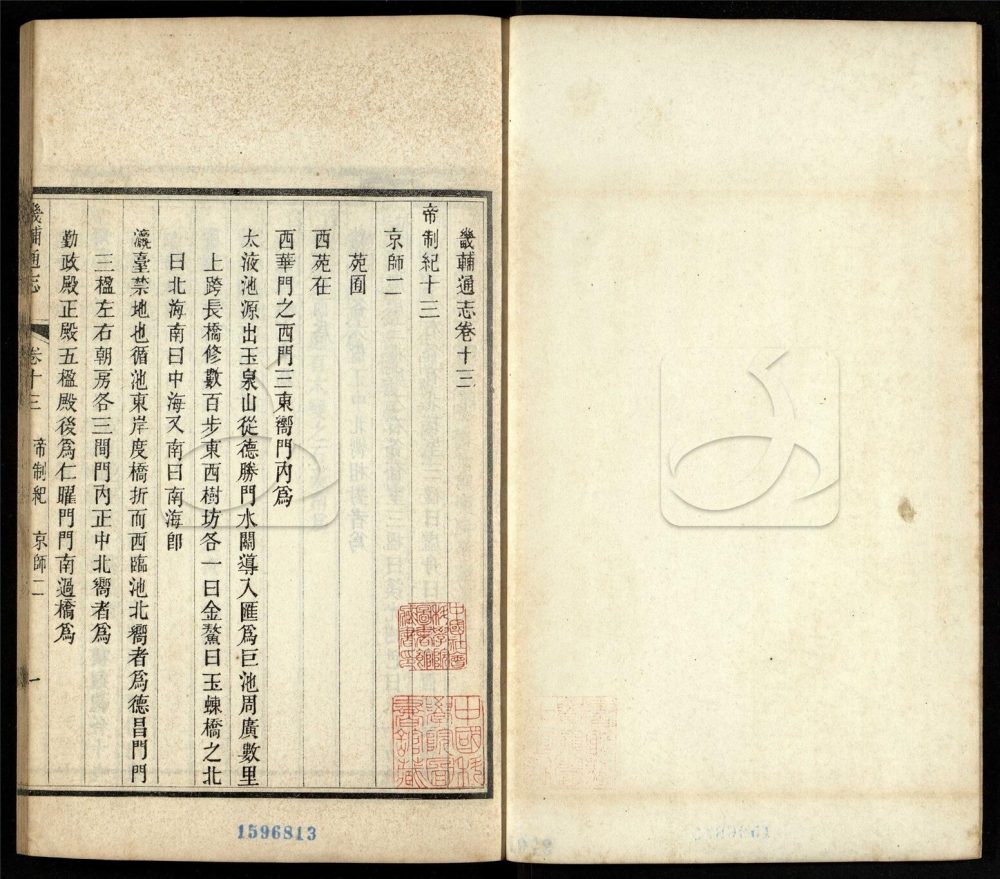 畿輔通志卷十三
帝制紀十三
京師二
苑囿
西苑在
西華門之西門三東嚮門內爲
太液池源出玉泉山從德勝門水關導入匯爲巨池周廣數里
上跨長橋修數百步東西樹坊各一曰金鰲曰玉蝀橋之北
曰北海南曰中海又南曰南海卽
瀛臺禁地也循池東岸度橋折而西臨池北嚮者爲德昌門門
三楹左右朝房各三間門內正中北嚮者爲
勤政殿正殿五楹殿後爲仁曜門門南過橋爲
畿輔通志 卷十三 帝制紀 京師二 一
中國社會科學院圖書館藏書印
中國科學院圖書館藏
1596813